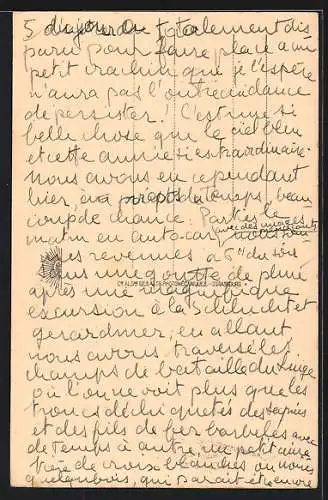 5 aujourd'hui totalement dis
paru pour faire place à un
petit crachin qui je l'espère
n'aura pas l'outrecuidance
de persister. C'est une si
belle chose que le ciel bleu
et cette année si extraordinaire
nous avons eu cependant
hier, à propos du temps, beau
coup de chance. Parties le
matin en auto-car avec des nuages
menaçants nous sommes
revenues à 6h du soir
sans une goutte de pluie
Cie ALSnne DES ARTS PHOTOMÉCANIQUES - STRASBOURG
après une magnifique
excursion à la Schlucht et
Gerardmer; en allant
nous avons traversé les
champs de bataille du Linge
où l'on ne voit plus que les
troncs déchiquetés des sapins
et des fils de fer barbelés avec
de temps à autre, un petit cime
tière de croix blanches ou noires
quelquefois, qui paraît être encore